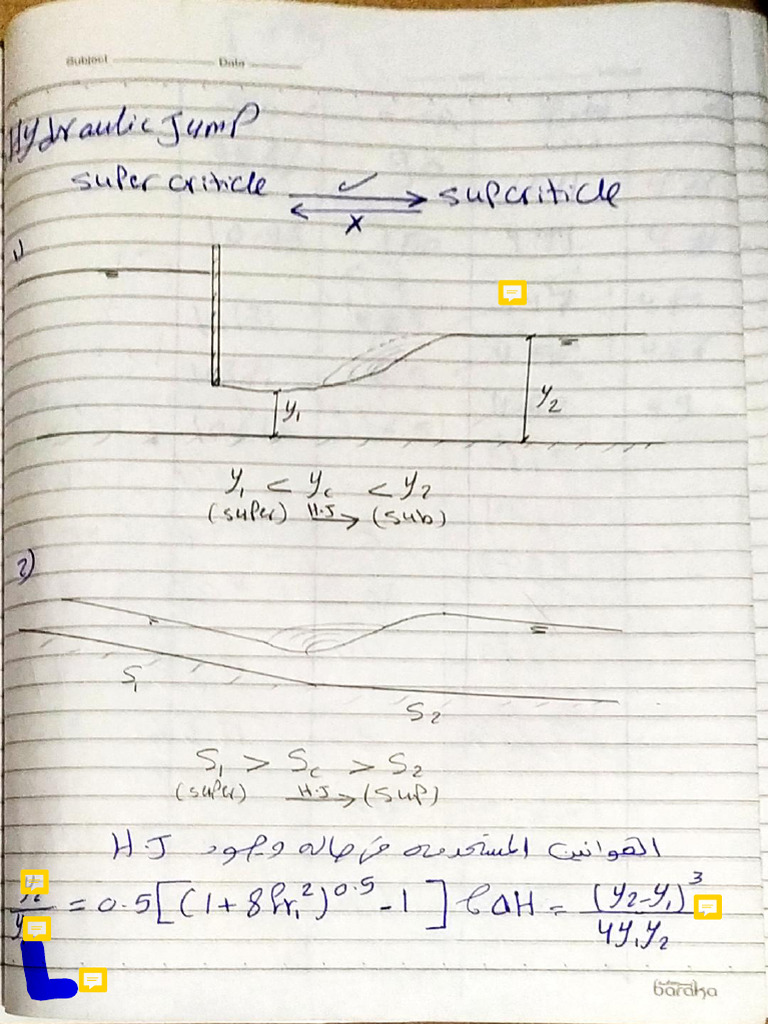 Subject Date
Hydraulic Jump
super criticle ✓ supcriticle
X
1)
y₁ y₂
y₁ < yc < y₂
(super) H.J → (sub)
2)
S₁
S₂
S₁ > Sc > S₂
(super) H.J → (sup)
القوانين المستخدمه في حاله وجود H.J
= 0.5[(1+8Fr₁²)^0.5 -1] , ΔH = (y₂-y₁)³ / 4y₁y₂
baraka